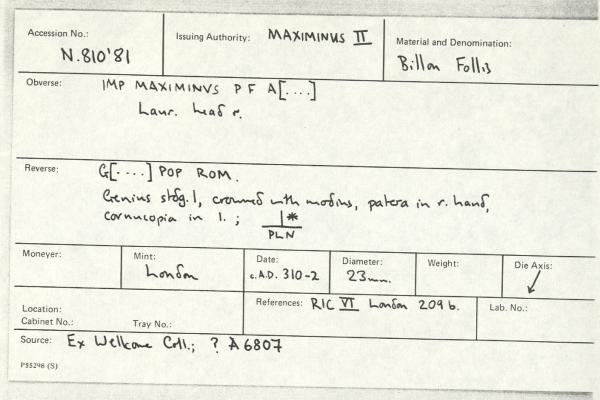 Accession No.: N.810'81
Issuing Authority: MAXIMINUS II
Material and Denomination: Billon Follis
Obverse: IMP MAXIMINVS P F A[....]
Laur. head r.
Reverse: G[....] POP ROM.
Genius stdg. l, crowned with modius, patera in r. hand,
cornucopia in l. ; | *
PLN
Moneyer:
Mint: London
Date: c. A.D. 310-2
Diameter: 23mm.
Weight:
Die Axis: ↙
Location:
Cabinet No.: Tray No.:
References: RIC VI London 209 b.
Lab. No.:
Source: Ex Wellcome Coll.; ? A 6807
P55298 (S)